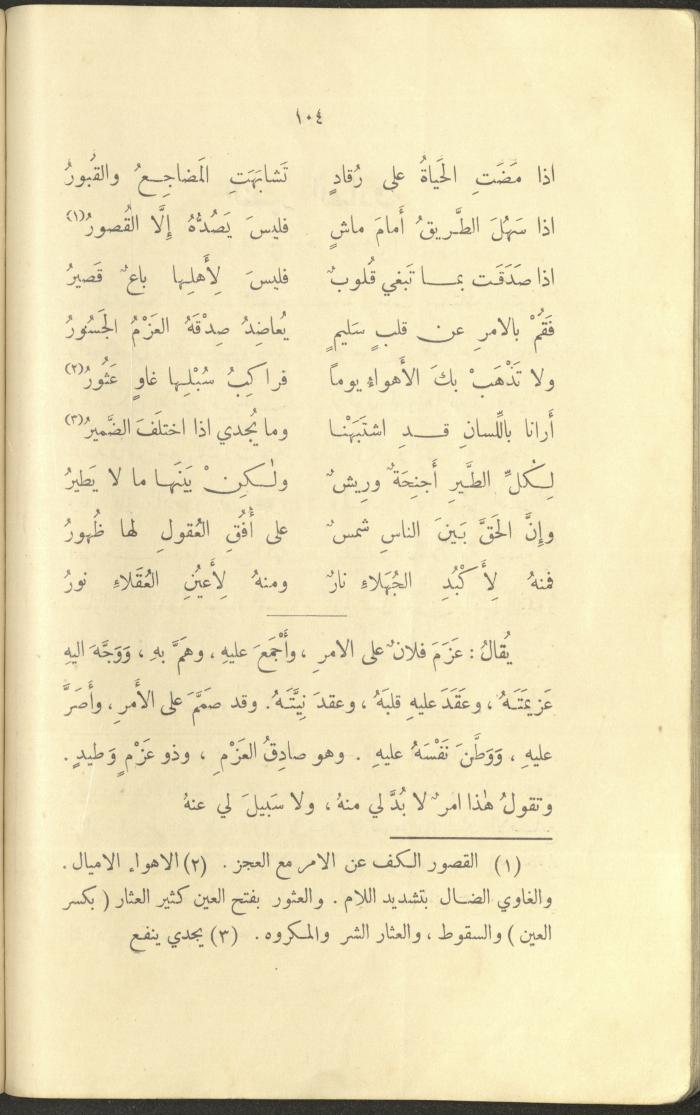 ١٠٤
اذا مَضَتِ الحَياةُ على رُقادٍ تَشابَهَتِ المَضاجِعُ والقُبورُ
اذا سَهُلَ الطَّريقُ أَمامَ ماشٍ فليسَ يَصُدُّهُ إِلَّا القُصورُ(١)
اذا صَدَقَت بما تَبغي قُلوبٌ فليسَ لِأَهلِها باعٌ قَصيرُ
فَقُمْ بالامرِ عن قلبٍ سَليمٍ يُعاضِدُ صِدْقَهُ العَزْمُ الجَسُورُ
ولا تَذْهَبْ بكَ الأَهواءُ يوماً فراكِبُ سُبْلِها غاوٍ عَثُورُ(٢)
أَرانا باللِّسانِ قدِ اشتَبَهْنا وما يُجدي اذا اختلَفَ الضَّميرُ(٣)
لِكلِّ الطَّيرِ أَجنِحَةٌ ورِيشٌ ولٰكِنْ بَيْنَها ما لا يَطيرُ
وإِنَّ الحَقَّ بَينَ الناسِ شمسٌ على أُفُقِ العُقولِ لها ظُهورُ
فمنهُ لِأَكْبُدِ الجُهَلاءِ نارٌ ومنهُ لِأَعيُنِ العُقَلاءِ نورُ
يُقالُ: عَزَمَ فلانٌ على الامرِ ، وأَجْمَعَ عليهِ ، وهَمَّ بهِ ، وَوَجَّهَ اليهِ
عَزيمَتَهُ ، وعَقَدَ عليهِ قلبَهُ ، وعقدَ نِيَّتَهُ. وقد صَمَّمَ على الأَمرِ ، وأَصَرَّ
عليهِ ، وَوَطَّنَ نَفْسَهُ عليهِ . وهو صادِقُ العَزْمِ ، وذو عَزْمٍ وَطيدٍ .
وتقولُ هٰذا امرٌ لا بُدَّ لي منهُ ، ولا سَبيلَ لي عنهُ
(١) القصور الكف عن الامر مع العجز . (٢) الاهواء الاميال .
والغاوي الضال بتشديد اللام . والعثور بفتح العين كثير العثار ( بكسر
العين ) والسقوط ، والعثار الشر والمكروه . (٣) يجدي ينفع